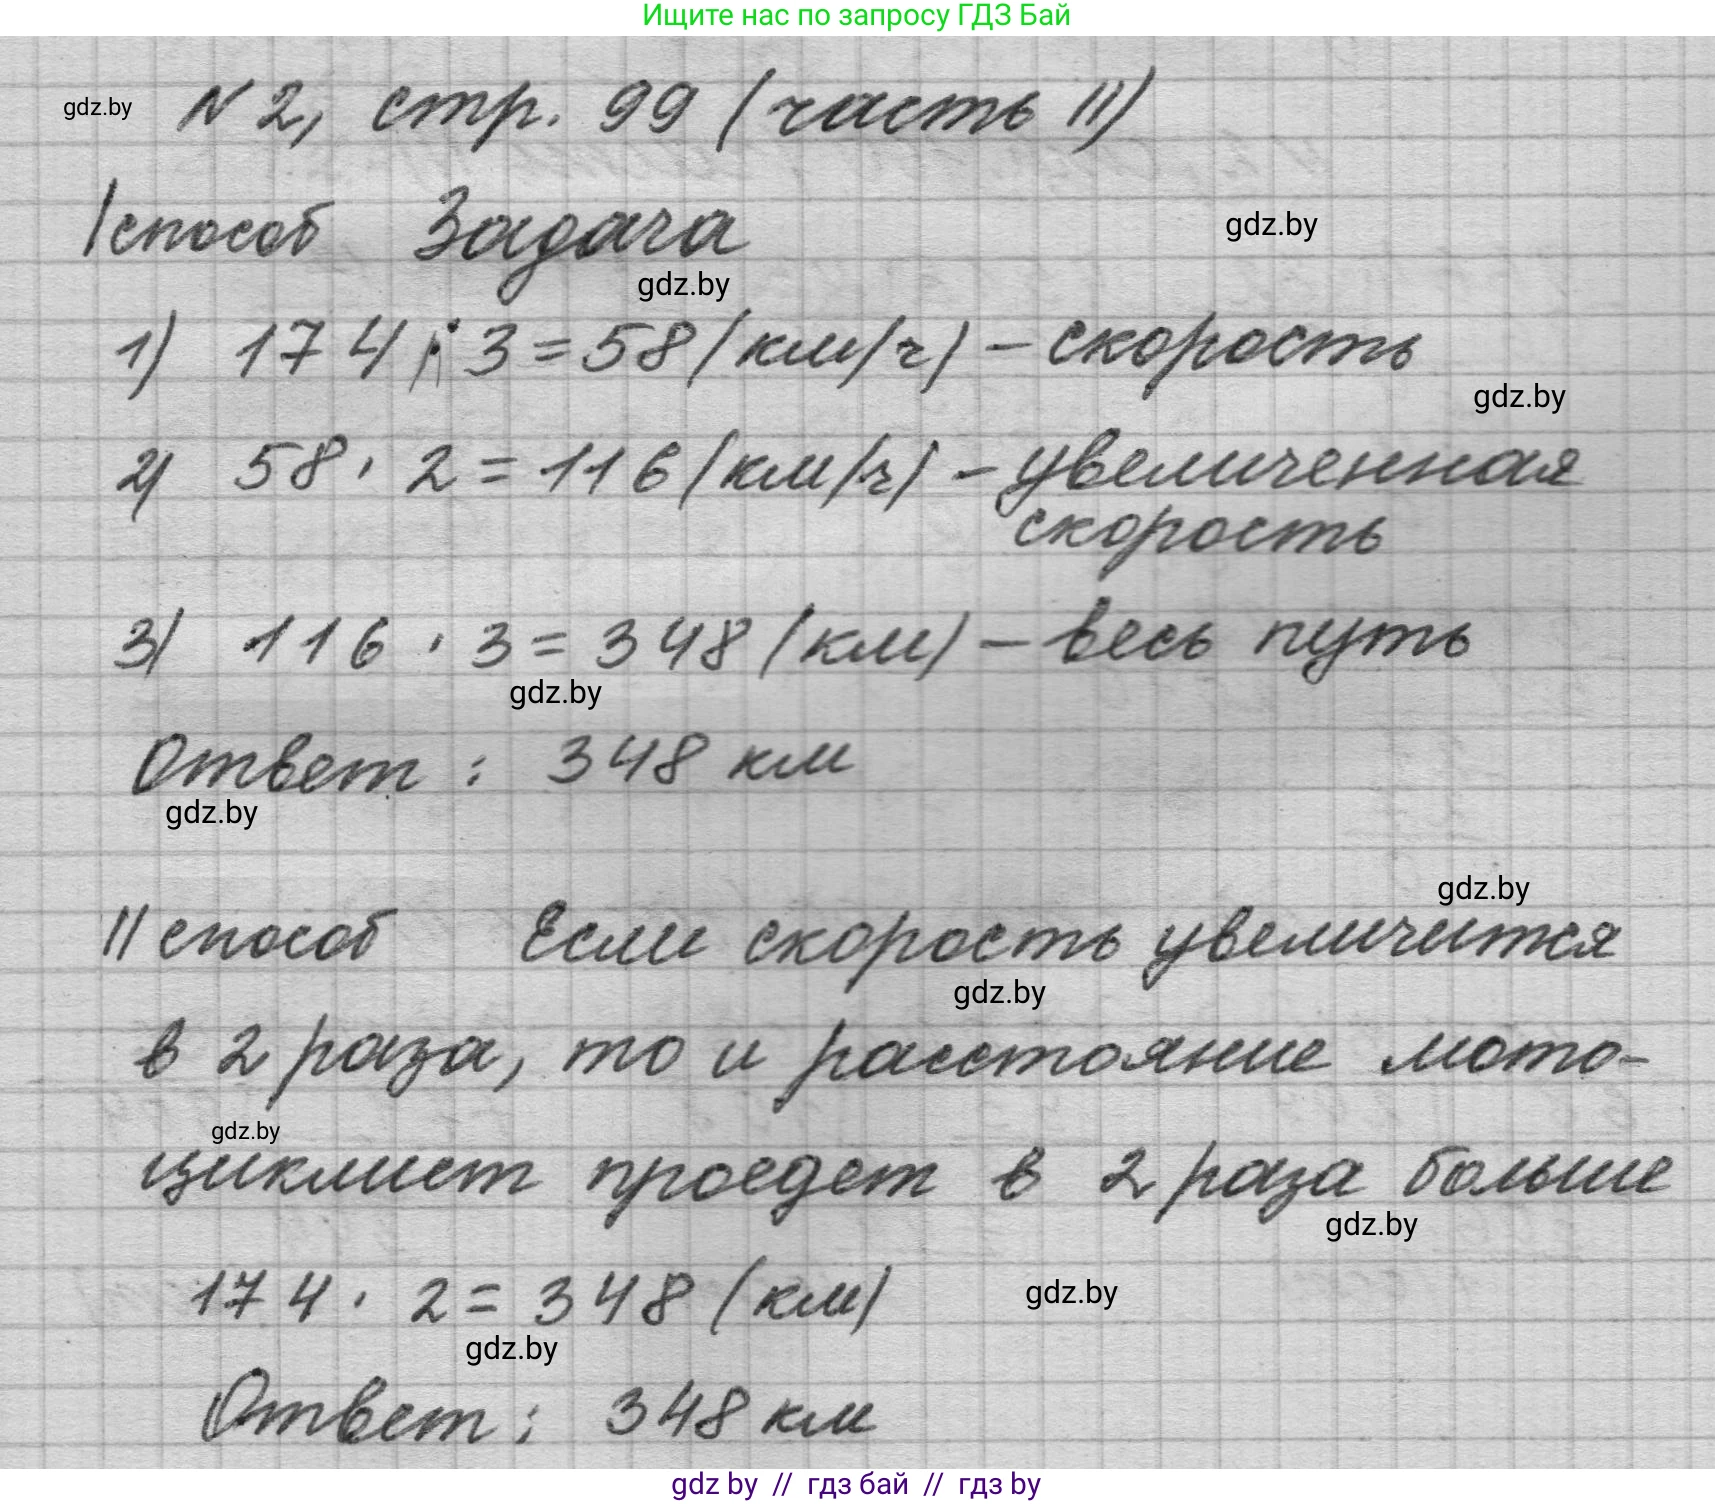 Ищите нас по запросу ГДЗ Бай
gdz.by
N 2, стр. 99 (часть II)
I способ Задача
gdz.by
gdz.by
1) 174 : 3 = 58 (км/ч) - скорость
gdz.by
2) 58 · 2 = 116 (км/ч) - увеличенная
скорость
3) 116 · 3 = 348 (км) - весь путь
gdz.by
Ответ : 348 км
gdz.by
gdz.by
II способ Если скорость увеличится
gdz.by
в 2 раза, то и расстояние мото-
gdz.by
циклист проедет в 2 раза больше
gdz.by
174 · 2 = 348 (км)
gdz.by
gdz.by
Ответ : 348 км
gdz by // гдз бай // гдз by